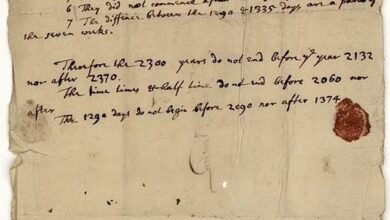 6 They did not commence after
7 The difference between the 1290 & 1335 days are a parts of
the seven weeks.
Therefore the 2300 years do not end before yᵉ year 2132
nor after 2370.
The time times & half time do not end before 2060 nor
after
The 1290 days do not begin before 2090 nor after 1374